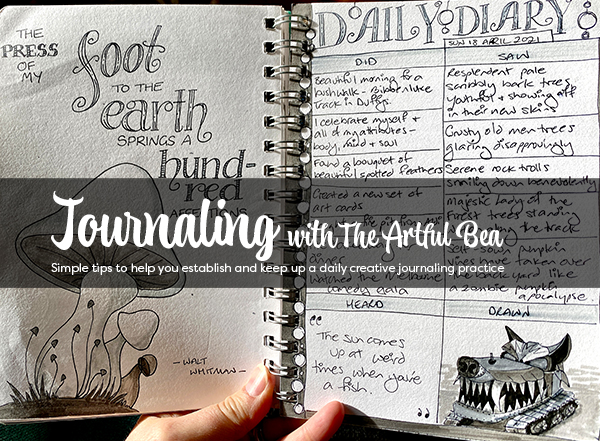 THE
PRESS
OF
MY
foot
TO THE
earth
SPRINGS A
hund-
red
AFFECTIONS
- WALT
WHITMAN -
Journaling with The Artful Bea
Simple tips to help you establish and keep up a daily creative journaling practice
DAILY DIARY
SUN 18 APRIL 2021
DID
Beautiful morning for a
bushwalk -
Track in Duffys.
I celebrate myself +
all of my attributes -
body, mind + soul
Found a bouquet of
beautiful spotted feathers
Created a new set of
art cards
dinner
watched the melbourne
comedy gala
SAW
Resplendent pale
scribbly bark trees
Youthful + showing off
in their new skins
Crusty old men trees
glaring disapprovingly
Serene rock trolls
smiling down benevolently
majestic lady of the
forest trees standing
the track
Self sown pumpkin
vines have taken over
the back yard like
a zombie pumpkin
apocalypse.
HEARD
"The sun comes
up at weird
times when you're
a fish."
DRAWN